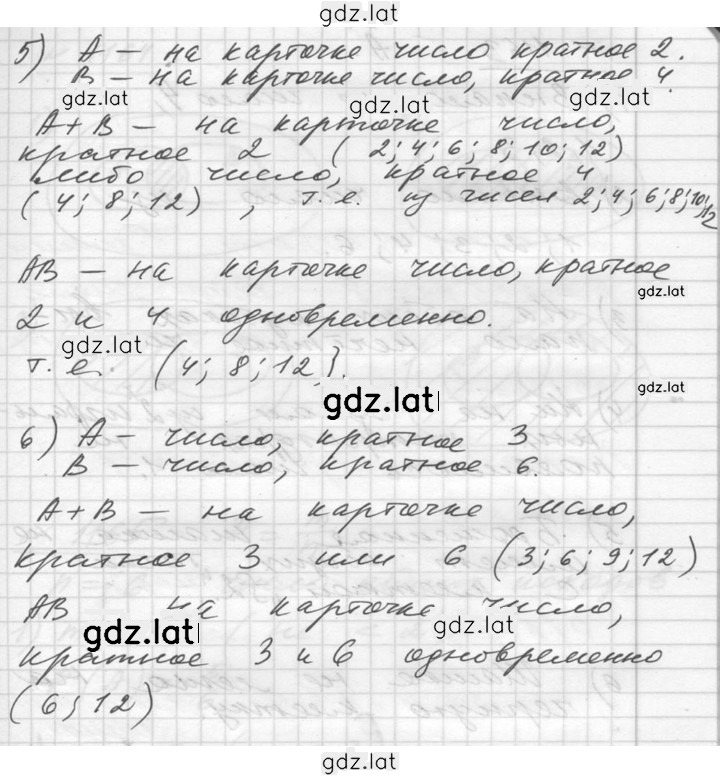 gdz.lat
5) A – на карточке число кратное 2.
B – на карточке число, кратное 4.
gdz.lat gdz.lat gdz.lat
A+B – на карточке число,
кратное 2 ( 2; 4; 6; 8; 10; 12)
либо число, кратное 4
( 4; 8; 12) , т.е. из чисел 2; 4; 6; 8; 10; 12
AB – на карточке число, кратное
gdz.lat
2 и 4 одновременно.
gdz.lat
т.е. (4; 8; 12}.
gdz.lat
gdz.lat
6) A – число, кратное 3
B – число, кратное 6.
A+B – на карточке число,
кратное 3 или 6 (3; 6; 9; 12)
AB на карточке число,
gdz.lat gdz.lat
кратное 3 и 6 одновременно
(6; 12)
gdz.lat
gdz.lat